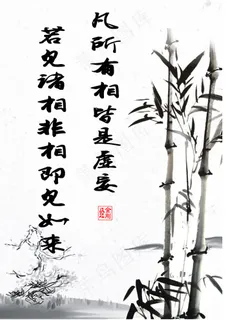 凡所有相皆是虚妄
若见诸相非相即见如来